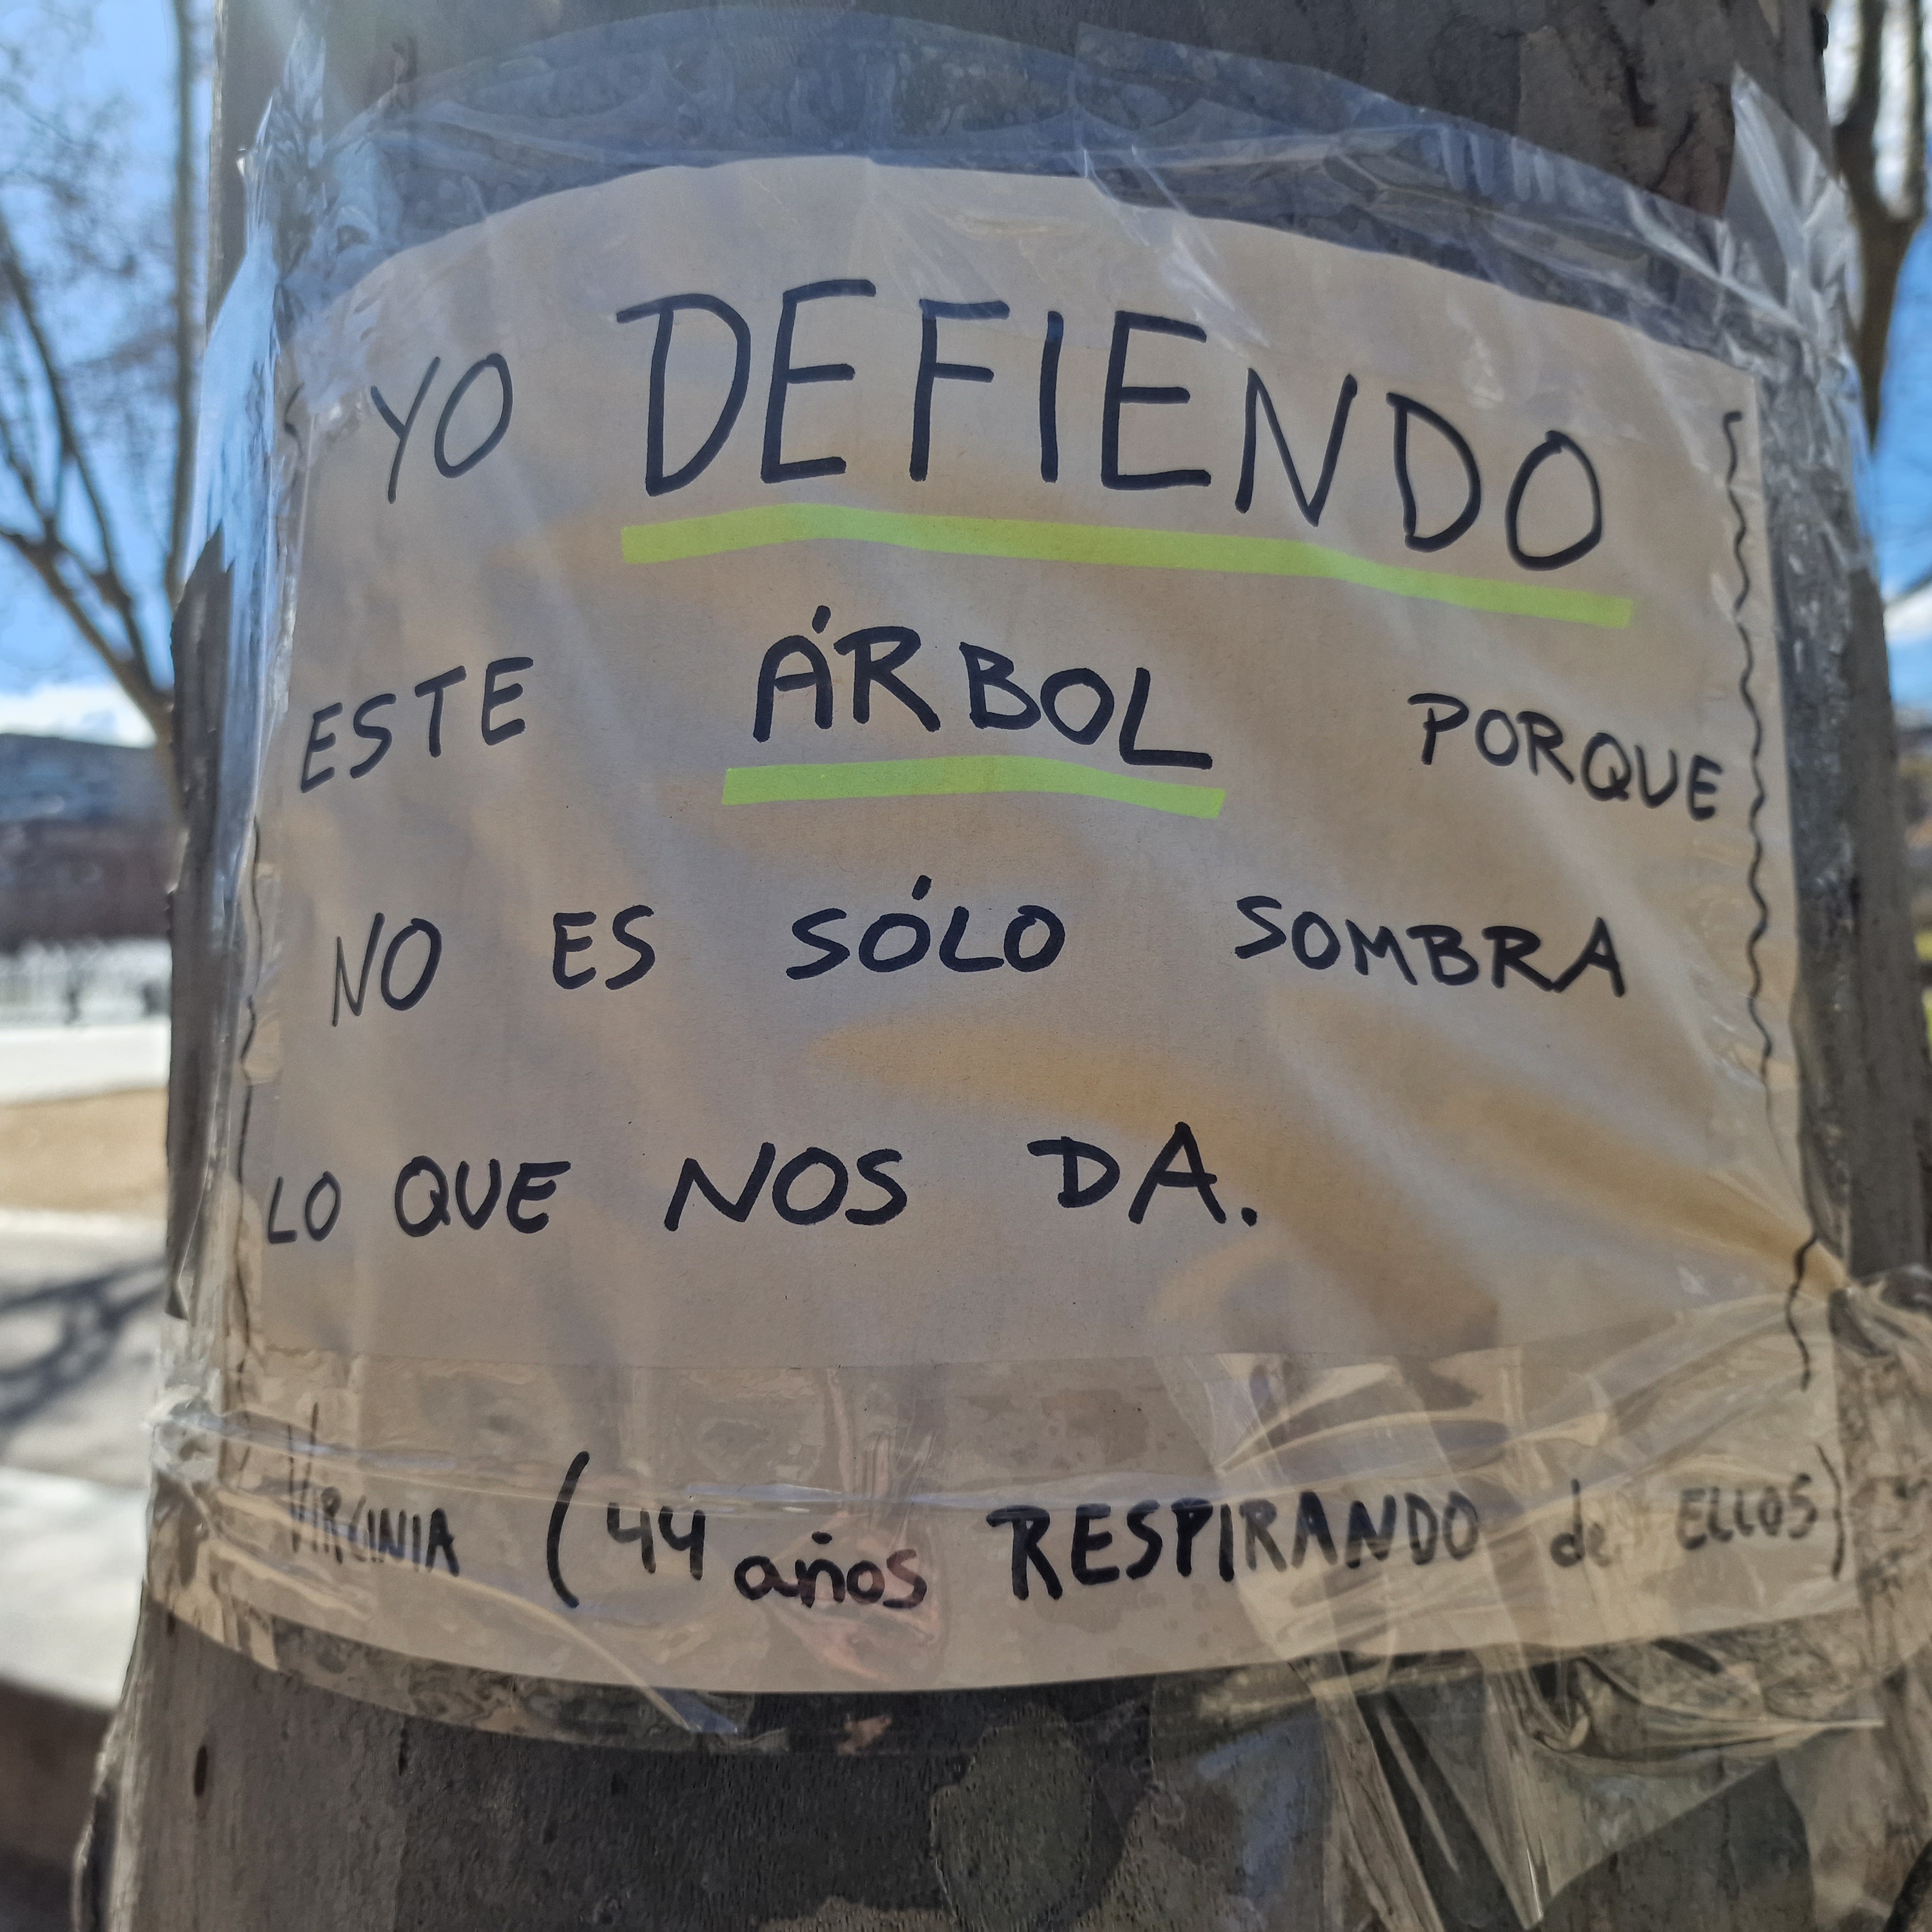 YO DEFIENDO
ESTE ÁRBOL PORQUE
NO ES SÓLO SOMBRA
LO QUE NOS DA.
VIRGINIA (44 años RESPIRANDO de ELLOS)